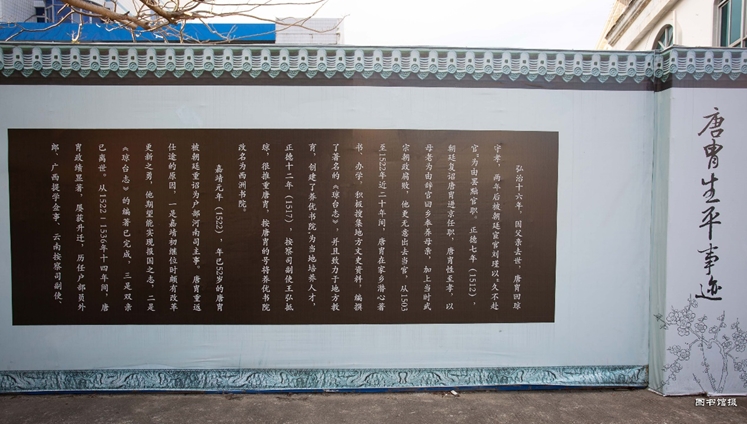 唐胄生平事迹
弘治十六年，因父亲去世，唐胄回琼
守孝，两年后被朝廷宦官刘瑾以"久不赴
官"为由罢黜官职，正德七年（1512），
朝廷复诏唐胄进京任职，唐胄性至孝，以
母老为由辞官回乡奉养母亲，加上当时武
宗朝政腐败，他更无意出去当官，从1503
至1522年近二十年间，唐胄在家乡潜心著
书、办学。积极搜集地方文史资料，编撰
了著名的《琼台志》，并且致力于地方教
育，创建了养优书院，为当地培养人才，
正德十二年（1517），按察司副使王弘抵
琼，很推重唐胄，按唐胄的号将养优书院
改名为西洲书院。
嘉靖元年（1522），年已52岁的唐胄
被朝廷重诏为户部河南司主事。唐胄重返
仕途的原因，一是嘉靖初继位时颇有改革
更新之勇，他期望能实现报国之志，二是
《琼台志》的编著已完成，三是双亲
已离世。从1522－1536年十四年间，唐
胄政绩显著，屡获升迁，历任户部员外
郎、广西提学佥事、云南按察司副使、
图书馆摄